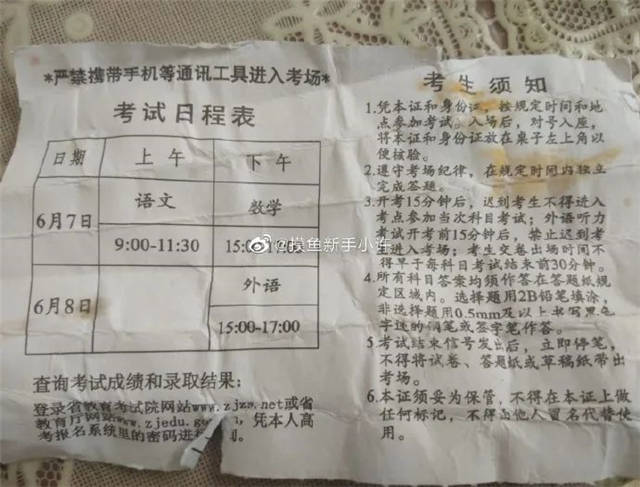 *严禁携带手机等通讯工具进入考场*
考试日程表
日期 上午 下午
6月7日 语文 数学
9:00-11:30 15:00-17:00
6月8日 外语
15:00-17:00
查询考试成绩和录取结果：
登录省教育考试院网站www.zjzs.net或省
教育厅网站www.zjedu.gov.cn，凭本人高
考报名系统里的密码进行
考生须知
1.凭本证和身份证，按规定时间和地
点参加考试。入场后，对号入座，
将本证和身份证放在桌子左上角以
便核验。
2.遵守考场纪律，在规定时间内独立
完成答题。
3.开考15分钟后，迟到考生不得进入
考点参加当次科目考试；外语听力
考试开考前15分钟后，禁止迟到考
生进入考场；考生交卷出场时间不
得早于每科目考试结束前30分钟。
4.所有科目答案均须作答在答题纸规
定区域内。选择题用2B铅笔填涂，
非选择题用0.5mm及以上书写黑色
字迹的钢笔或签字笔作答。
5.考试结束信号发出后，立即停笔，
不得将试卷、答题纸或草稿纸带出
考场。
6.本证须妥为保管，不得在本证上做
任何标记，不得由他人冒名代替使
用。
@摸鱼新手小连